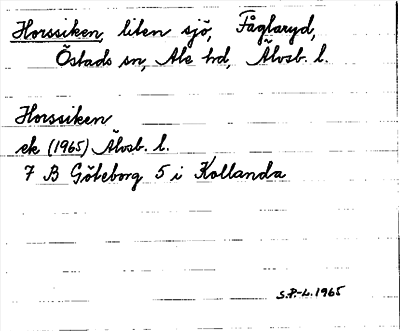 Horssiken, liten sjö, Fåglaryd,
Östads sn, Ale hd, Älvsb. l.
Horssiken
ek (1965) Älvsb. l.
7 B Göteborg 5 i Kollanda
S.P.-L. 1965